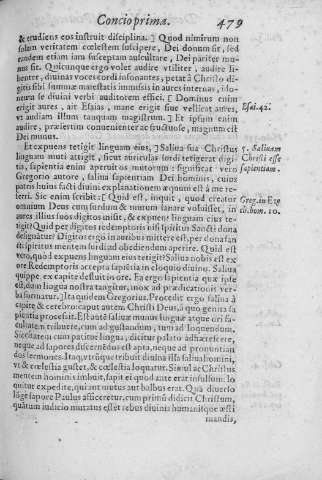 Concio prima. 479
& erudiens eos instruit disciplina. ] Quod nimirum non
solum veritatem cœlestem suscipere, Dei donum sit, sed
eandem etiam iam susceptam auscultare, Dei pariter mu-
nus sit. Quicunque ergo volet audire vtiliter, audire li-
benter, diuinas voces cordi insonantes, petat à Christo di-
gitis sibi summæ maiestatis immissis in aures internas, ido-
neum se diuini verbi auditorem effici. [ Dominus enim
erigit aures, ait Esaias, mane erigit siue vellicat aures,
vt audiam illum tanquam magistrum. ] Et ipsum enim
audire, præsertim conuenienter ac fructuose, magnum est
Dei munus.
Esai. 42.
Et expuens tetigit linguam eius, ] Saliua sua Christus
linguam muti attigit, sicut auriculas surdi tetigerat digi-
tis, sapientia enim aperuit os mutorum: significat vero
Gregorio autore, salina sapientiam Dei hominis, cuius
patris huius facti diuini explanationem æquum est à me re-
ferri. Sic enim scribit: [ Quid est, inquit, quod creator
omnium Deus cum surdum & mutum sanare voluisset, in
aures illius suos digitos misit, & expuens linguam eius te-
tigit? Quid per digitos redemptoris nisi spiritus Sancti dona
designatur? Digitos ergo in auribus mittere est, per dona san
cti spiritus mentem surdi ad obediendum aperire. Quid est
vero, quòd expuens linguam eius tetigit? Saliua nobis est ex
ore Redemptoris accepta sapiētia in eloquio diuino. Saliua
quippe ex capite defluit in ore. Ea ergo sapientia quæ ipse
est, dum lingua nostra tangitur, mox ad prædicationis ver-
ba formatur. ] Ita quidem Gregorius. Procedit ergo saliua à
capite & cerebro: caput autem Christi Deus, à quo genita sa
pientia processit. Est autē saliuæ munus linguæ atque ori fa-
cultatem tribuere, cum ad gustandum, tum ad loquendum.
Siccitatem cum patitur lingua, dicitur palato adhærescere,
neque ad sapores discernēdos est apta, neque ad pronuntian
dos sermones. Itaq; vtrūque tribuit diuina illa saliua homini,
vt & cœlestia gustet, & cœlestia loquatur. Simul ac Christus
mentem hominis imbuit, sapit ei quod ante erat insulsum: lo
quitur expedite, qui aut mutus aut balbus erat. Quā diuerso
lōgè sapore Paulus afficeretur, cum primū didicit Christum,
quātum iudicio mutatus est et rebus diuinis humanisque æsti
mandis,
5. Saliuam
Christi esse
sapientiam.
Greg. in Eze
ch. hom. 10.